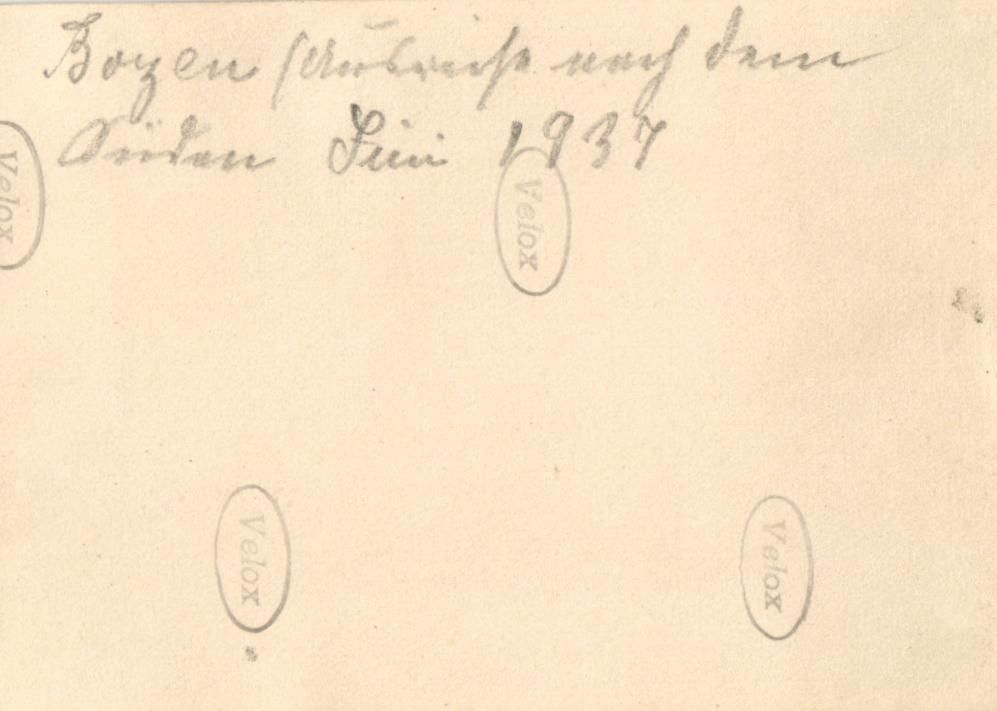 Bozen nach dem
Süden Juni 1937
Velox
Velox
Velox
Velox